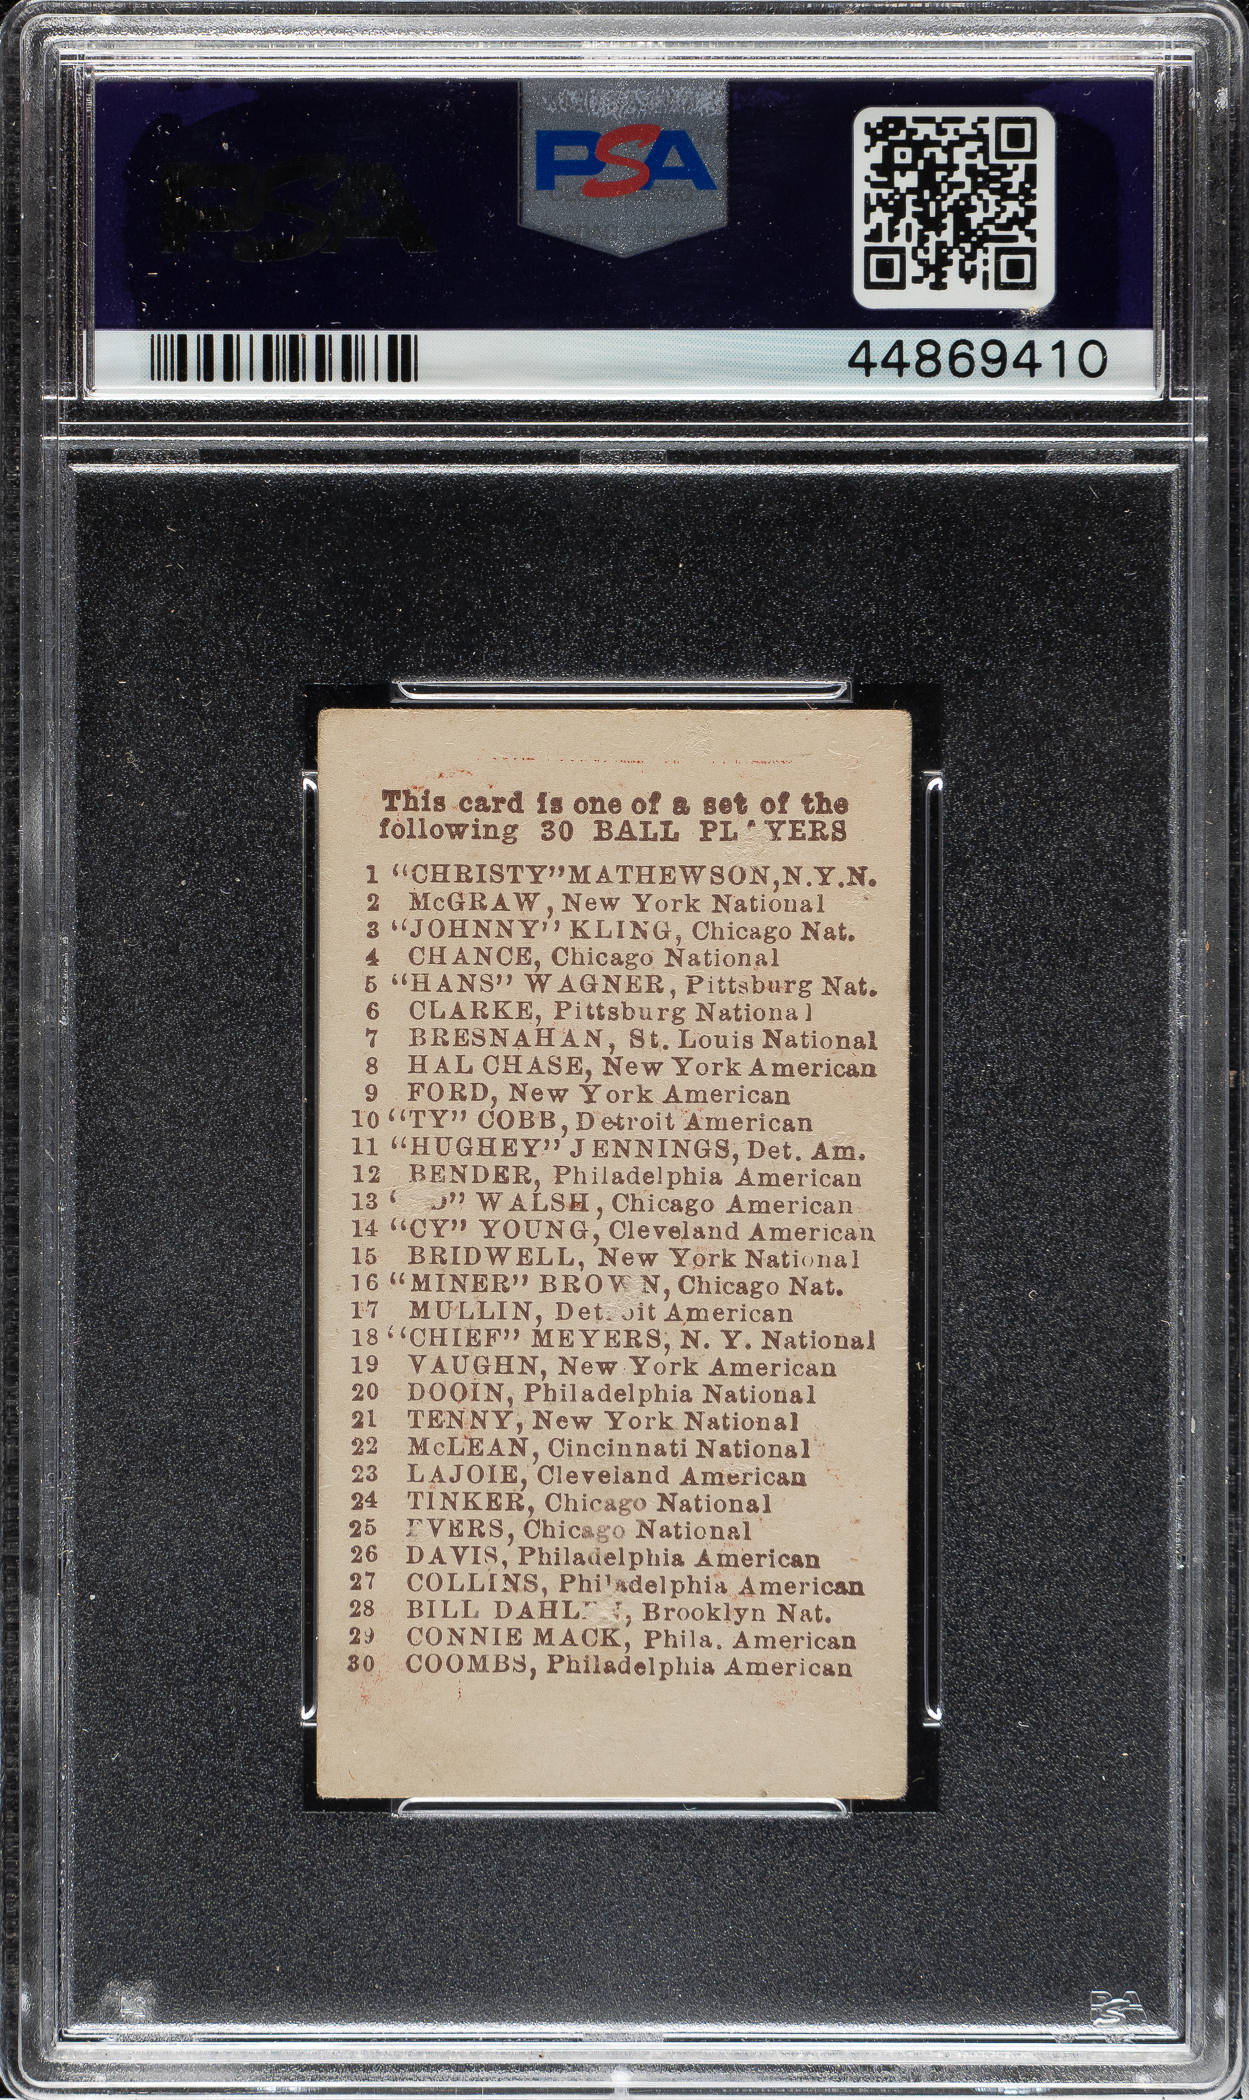 PSA
PSA
44869410
This card is one of a set of the
following 30 BALL PL YERS
1 “CHRISTY” MATHEWSON, N.Y.N.
2 McGRAW, New York National
3 “JOHNNY” KLING, Chicago Nat.
4 CHANCE, Chicago National
5 “HANS” WAGNER, Pittsburg Nat.
6 CLARKE, Pittsburg National
7 BRESNAHAN, St. Louis National
8 HAL CHASE, New York American
9 FORD, New York American
10 “TY” COBB, Detroit American
11 “HUGHEY” JENNINGS, Det. Am.
12 BENDER, Philadelphia American
13 WALSH, Chicago American
14 “CY” YOUNG, Cleveland American
15 BRIDWELL, New York National
16 “MINER” BROWN, Chicago Nat.
17 MULLIN, Detroit American
18 “CHIEF” MEYERS, N. Y. National
19 VAUGHN, New York American
20 DOOIN, Philadelphia National
21 TENNY, New York National
22 McLEAN, Cincinnati National
23 LAJOIE, Cleveland American
24 TINKER, Chicago National
25 EVERS, Chicago National
26 DAVIS, Philadelphia American
27 COLLINS, Philadelphia American
28 BILL DAHLEN, Brooklyn Nat.
29 CONNIE MACK, Phila. American
30 COOMBS, Philadelphia American
PSA